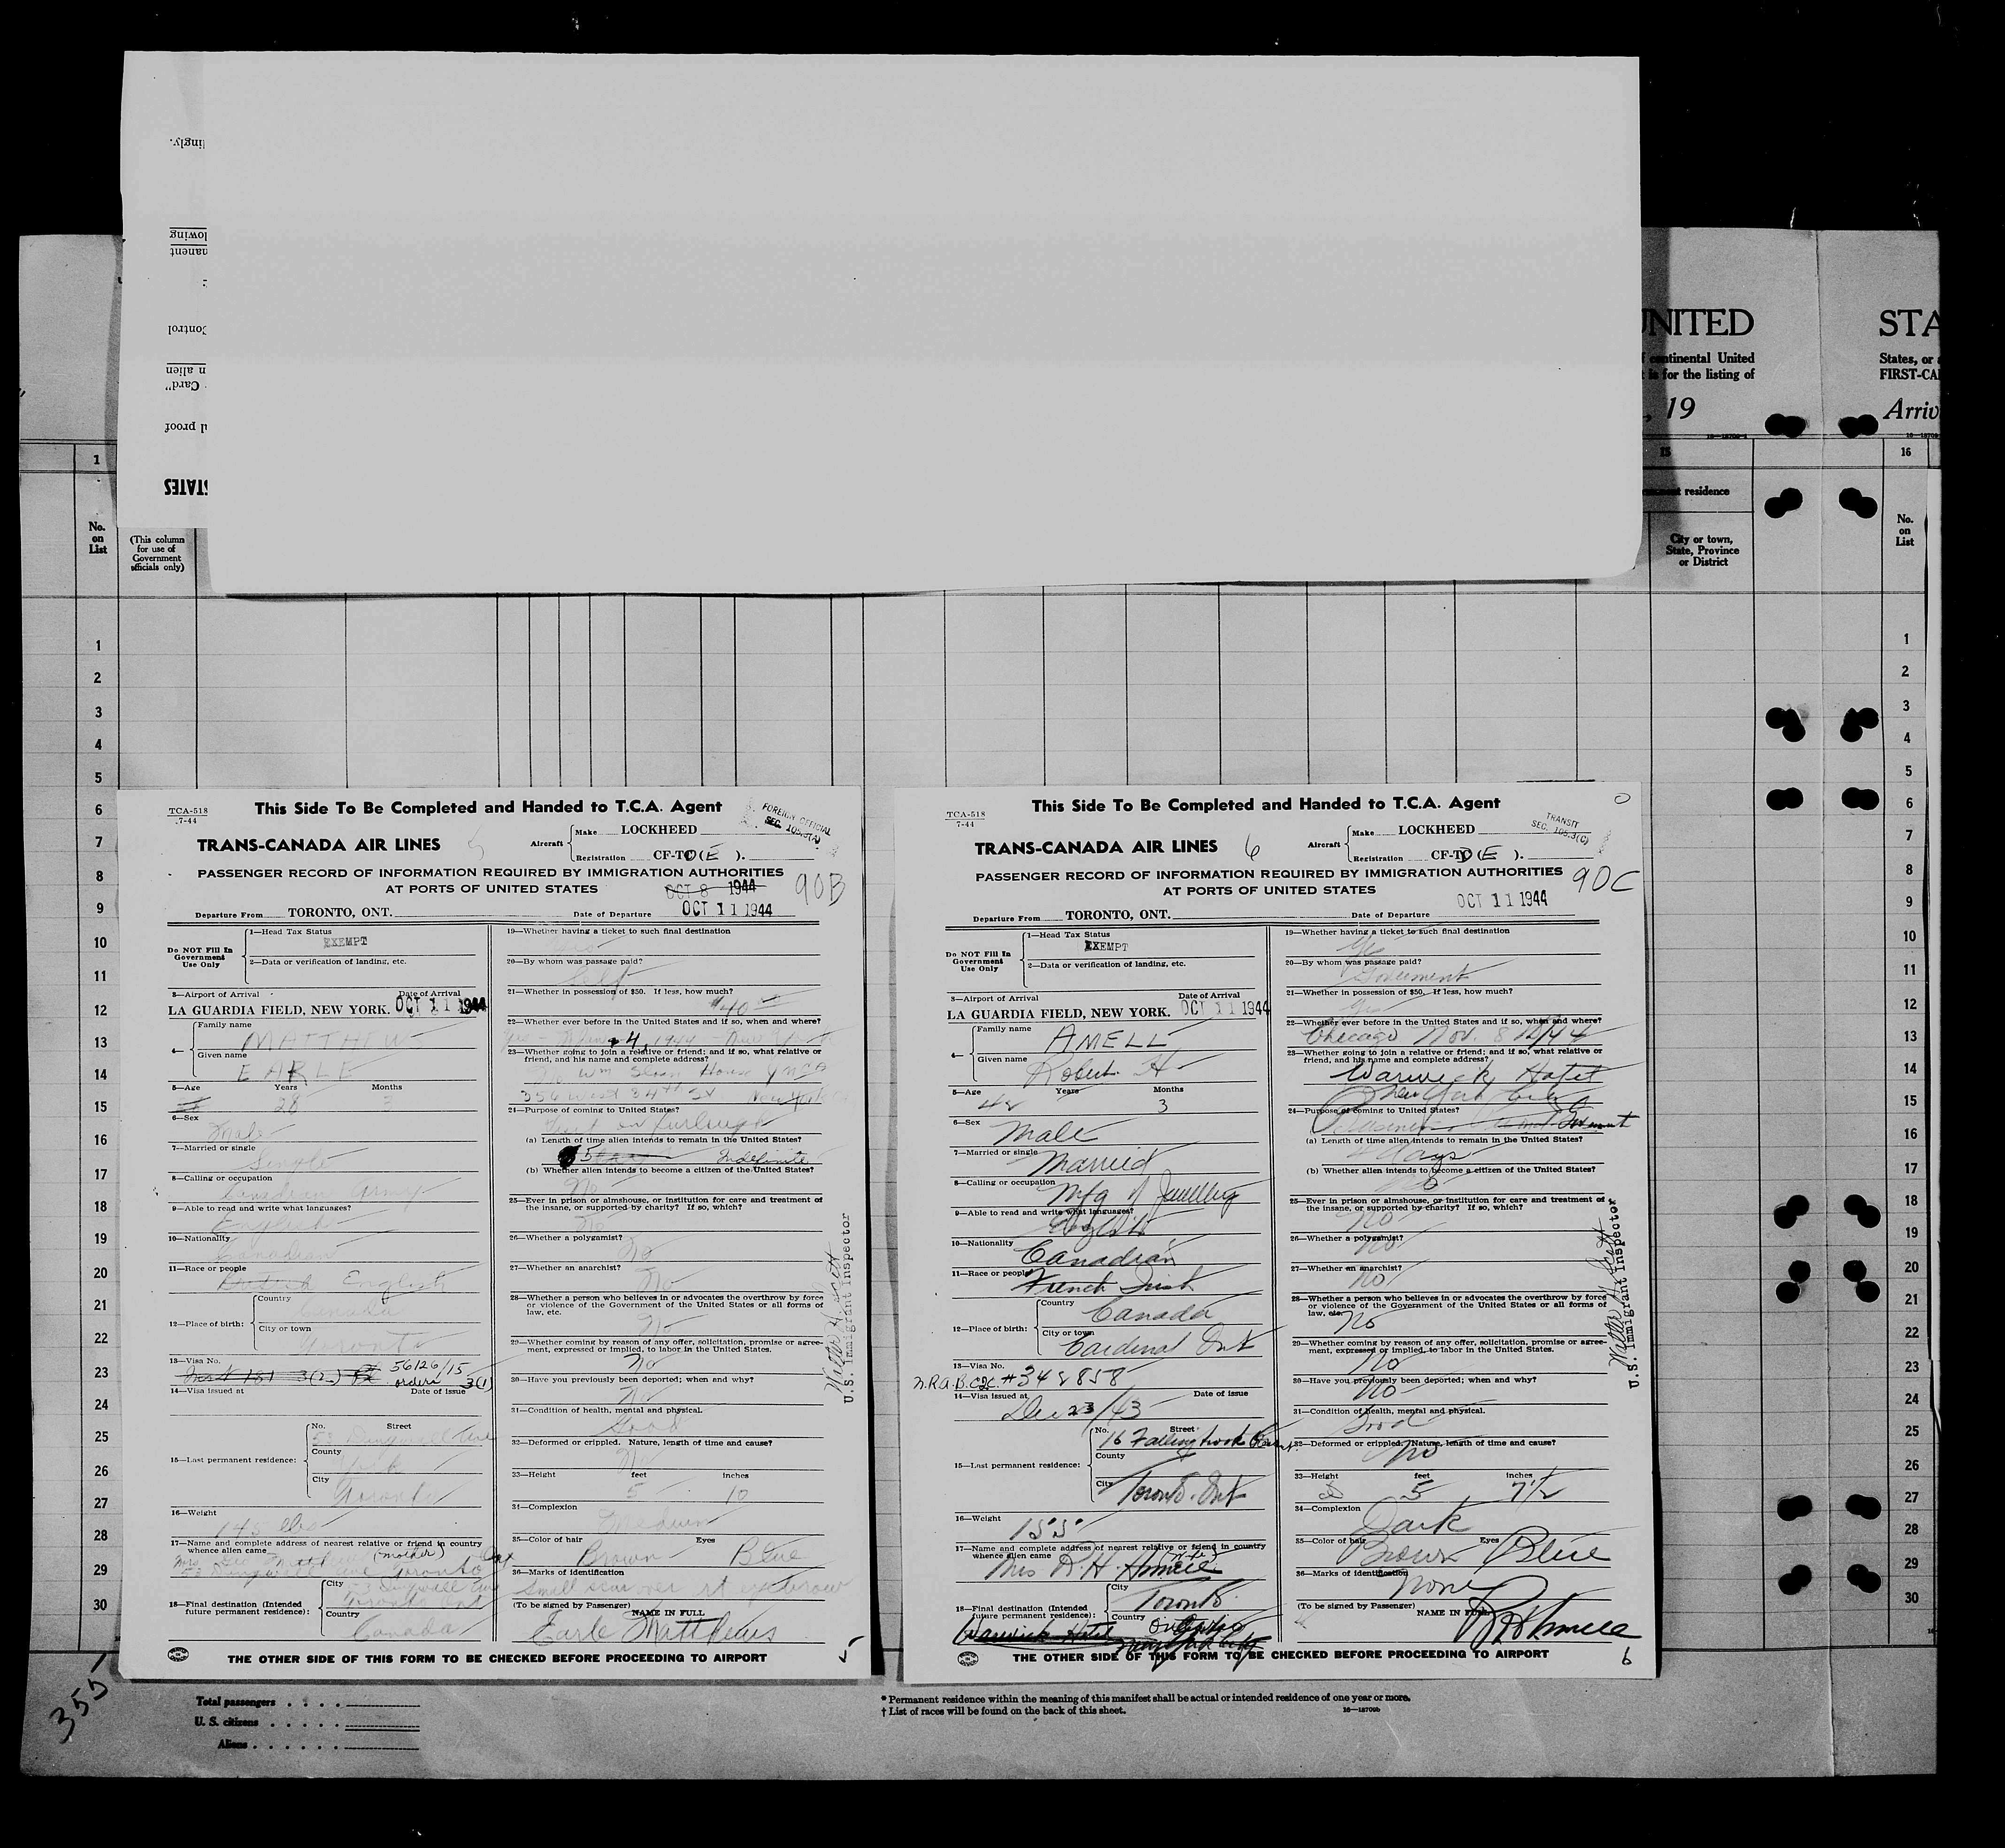 UNITED STA
continental United States, or
is for the listing of FIRST-CA
, 19 Arriv
1 15 16
residence
No. on List
(This column for use of Government officials only)
City or town, State, Province or District
No. on List
1
2
3
4
5
6
7
8
9
10
11
12
13
14
15
16
17
18
19
20
21
22
23
24
25
26
27
28
29
30
TCA-518
7-44
This Side To Be Completed and Handed to T.C.A. Agent
FOREIGN OFFICIAL
SEC. 105.3(A)
TRANS-CANADA AIR LINES 5
Aircraft Make LOCKHEED
Registration CF-TC (E ).
PASSENGER RECORD OF INFORMATION REQUIRED BY IMMIGRATION AUTHORITIES
AT PORTS OF UNITED STATES OCT 8 1944 90B
Departure From TORONTO, ONT. Date of Departure OCT 11 1944
Do NOT Fill In Government Use Only
1—Head Tax Status
EXEMPT
2—Data or verification of landing, etc.
3—Airport of Arrival Date of Arrival
LA GUARDIA FIELD, NEW YORK. OCT 11 1944
4— Family name
MATTHEW
Given name
EARLE
5—Age Years Months
28 3
6—Sex
Male
7—Married or single
Single
8—Calling or occupation
Canadian Army
9—Able to read and write what languages?
English
10—Nationality
Canadian
11—Race or people
British English
12—Place of birth: Country
Canada
City or town
Toronto
13—Visa No. 56126/15
orders 3(1)
14—Visa issued at Date of issue
15—Last permanent residence: No. Street
53 Dingwall Ave
County
York
City
Toronto
16—Weight
145 lbs
17—Name and complete address of nearest relative or friend in country whence alien came
(mother)
53 Dingwall Ave Toronto Ont
18—Final destination (Intended future permanent residence): City
53 Dingwall Ave
Toronto Ont
Country
Canada
19—Whether having a ticket to such final destination
Yes
20—By whom was passage paid?
Self
21—Whether in possession of $50. If less, how much?
$40
22—Whether ever before in the United States and if so, when and where?
23—Whether going to join a relative or friend; and if so, what relative or friend, and his name and complete address?
No Wm Sloan House YMCA
356 West 34th St New York
24—Purpose of coming to United States?
Visit on Furlough
(a) Length of time alien intends to remain in the United States?
5 days Indefinite
(b) Whether alien intends to become a citizen of the United States?
No
25—Ever in prison or almshouse, or institution for care and treatment of the insane, or supported by charity? If so, which?
No
26—Whether a polygamist?
No
27—Whether an anarchist?
No
28—Whether a person who believes in or advocates the overthrow by force or violence of the Government of the United States or all forms of law, etc.
No
29—Whether coming by reason of any offer, solicitation, promise or agreement, expressed or implied, to labor in the United States.
No
30—Have you previously been deported; when and why?
No
31—Condition of health, mental and physical.
Good
32—Deformed or crippled. Nature, length of time and cause?
No
33—Height feet inches
5 10
34—Complexion
Medium
35—Color of hair Eyes
Brown Blue
36—Marks of identification
Small scar over rt eyebrow
(To be signed by Passenger) NAME IN FULL
Earle Matthews
U.S. Immigrant Inspector
THE OTHER SIDE OF THIS FORM TO BE CHECKED BEFORE PROCEEDING TO AIRPORT
TCA-518
7-44
This Side To Be Completed and Handed to T.C.A. Agent
TRANSIT
SEC. 105.3(C)
TRANS-CANADA AIR LINES 6
Aircraft Make LOCKHEED
Registration CF-TC (E ).
PASSENGER RECORD OF INFORMATION REQUIRED BY IMMIGRATION AUTHORITIES
AT PORTS OF UNITED STATES 90C
Departure From TORONTO, ONT. Date of Departure OCT 11 1944
Do NOT Fill In Government Use Only
1—Head Tax Status
EXEMPT
2—Data or verification of landing, etc.
3—Airport of Arrival Date of Arrival
LA GUARDIA FIELD, NEW YORK. OCT 11 1944
4— Family name
AMELL
Given name
Robert H
5—Age Years Months
48 3
6—Sex
Male
7—Married or single
Married
8—Calling or occupation
Mfg of Jewellery
9—Able to read and write what languages?
English
10—Nationality
Canadian
11—Race or people
French Irish
12—Place of birth: Country
Canada
City or town
Cardinal Ont
13—Visa No.
N.R.A.B.C.2C. #348858
14—Visa issued at Date of issue
Dec 23/43
15—Last permanent residence: No. Street
16 Fallingbrook
County
City
Toronto. Ont
16—Weight
155
17—Name and complete address of nearest relative or friend in country whence alien came
Mrs R. H. Amell (wife)
18—Final destination (Intended future permanent residence): City
Toronto
Country
Ontario
Warwick Hotel
New York City
19—Whether having a ticket to such final destination
Yes
20—By whom was passage paid?
Government
21—Whether in possession of $50. If less, how much?
Yes
22—Whether ever before in the United States and if so, when and where?
Chicago Nov. 8
23—Whether going to join a relative or friend; and if so, what relative or friend, and his name and complete address?
Warwick Hotel
New York City
24—Purpose of coming to United States?
(a) Length of time alien intends to remain in the United States?
4 days
(b) Whether alien intends to become a citizen of the United States?
No
25—Ever in prison or almshouse, or institution for care and treatment of the insane, or supported by charity? If so, which?
No
26—Whether a polygamist?
No
27—Whether an anarchist?
No
28—Whether a person who believes in or advocates the overthrow by force or violence of the Government of the United States or all forms of law, etc.
No
29—Whether coming by reason of any offer, solicitation, promise or agreement, expressed or implied, to labor in the United States.
No
30—Have you previously been deported; when and why?
No
31—Condition of health, mental and physical.
Good
32—Deformed or crippled. Nature, length of time and cause?
No
33—Height feet inches
5 7 1/2
34—Complexion
Dark
35—Color of hair Eyes
Brown Blue
36—Marks of identification
None
(To be signed by Passenger) NAME IN FULL
R H Amell
U.S. Immigrant Inspector
6
THE OTHER SIDE OF THIS FORM TO BE CHECKED BEFORE PROCEEDING TO AIRPORT
355
Total passengers
U. S. citizens
Aliens
* Permanent residence within the meaning of this manifest shall be actual or intended residence of one year or more.
† List of races will be found on the back of this sheet.